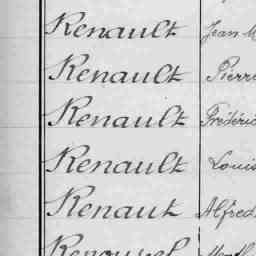 Renault Jean M
Renault Pierre
Renault Frédéric
Renault Louis
Renaut Alfred
Renouvel